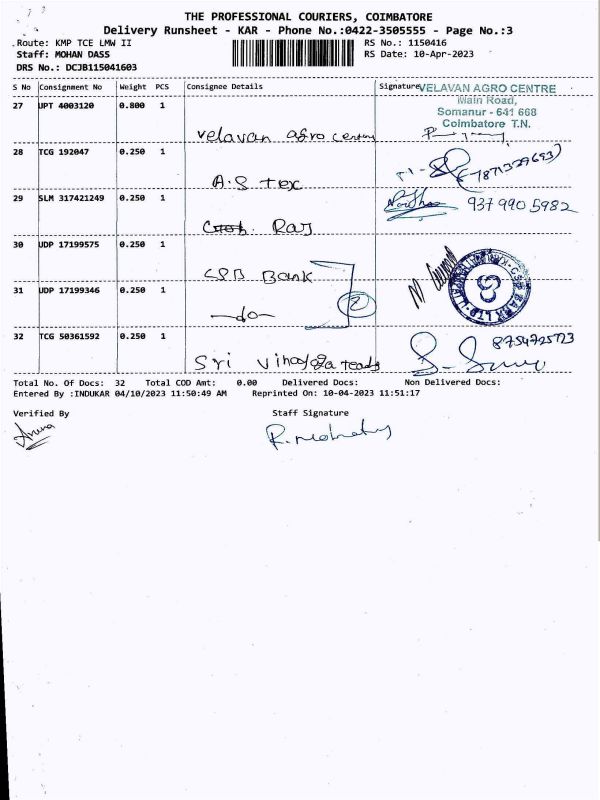 THE PROFESSIONAL COURIERS, COIMBATORE
Delivery Runsheet - KAR - Phone No.:0422-3505555 - Page No.:3
Route: KMP TCE LMW II
RS No.: 1150416
Staff: MOHAN DASS
RS Date: 10-Apr-2023
DRS No.: DCJB115041603
S No Consignment No Weight PCS Consignee Details Signature
VELAVAN AGRO CENTRE
Main Road,
Somanur - 641 668
Coimbatore T.N.
27 UPT 4003120 0.800 1
velavan agro
28 TCG 192047 0.250 1
A.S tex
29 SLM 317421249 0.250 1
937 990 5982
Raj
30 UDP 17199575 0.250 1
CSB Bank
31 UDP 17199346 0.250 1
—do—
2
32 TCG 50361592 0.250 1
Sri
Total No. Of Docs: 32 Total COD Amt: 0.00 Delivered Docs: Non Delivered Docs:
Entered By :INDUKAR 04/10/2023 11:50:49 AM Reprinted On: 10-04-2023 11:51:17
Verified By
Staff Signature